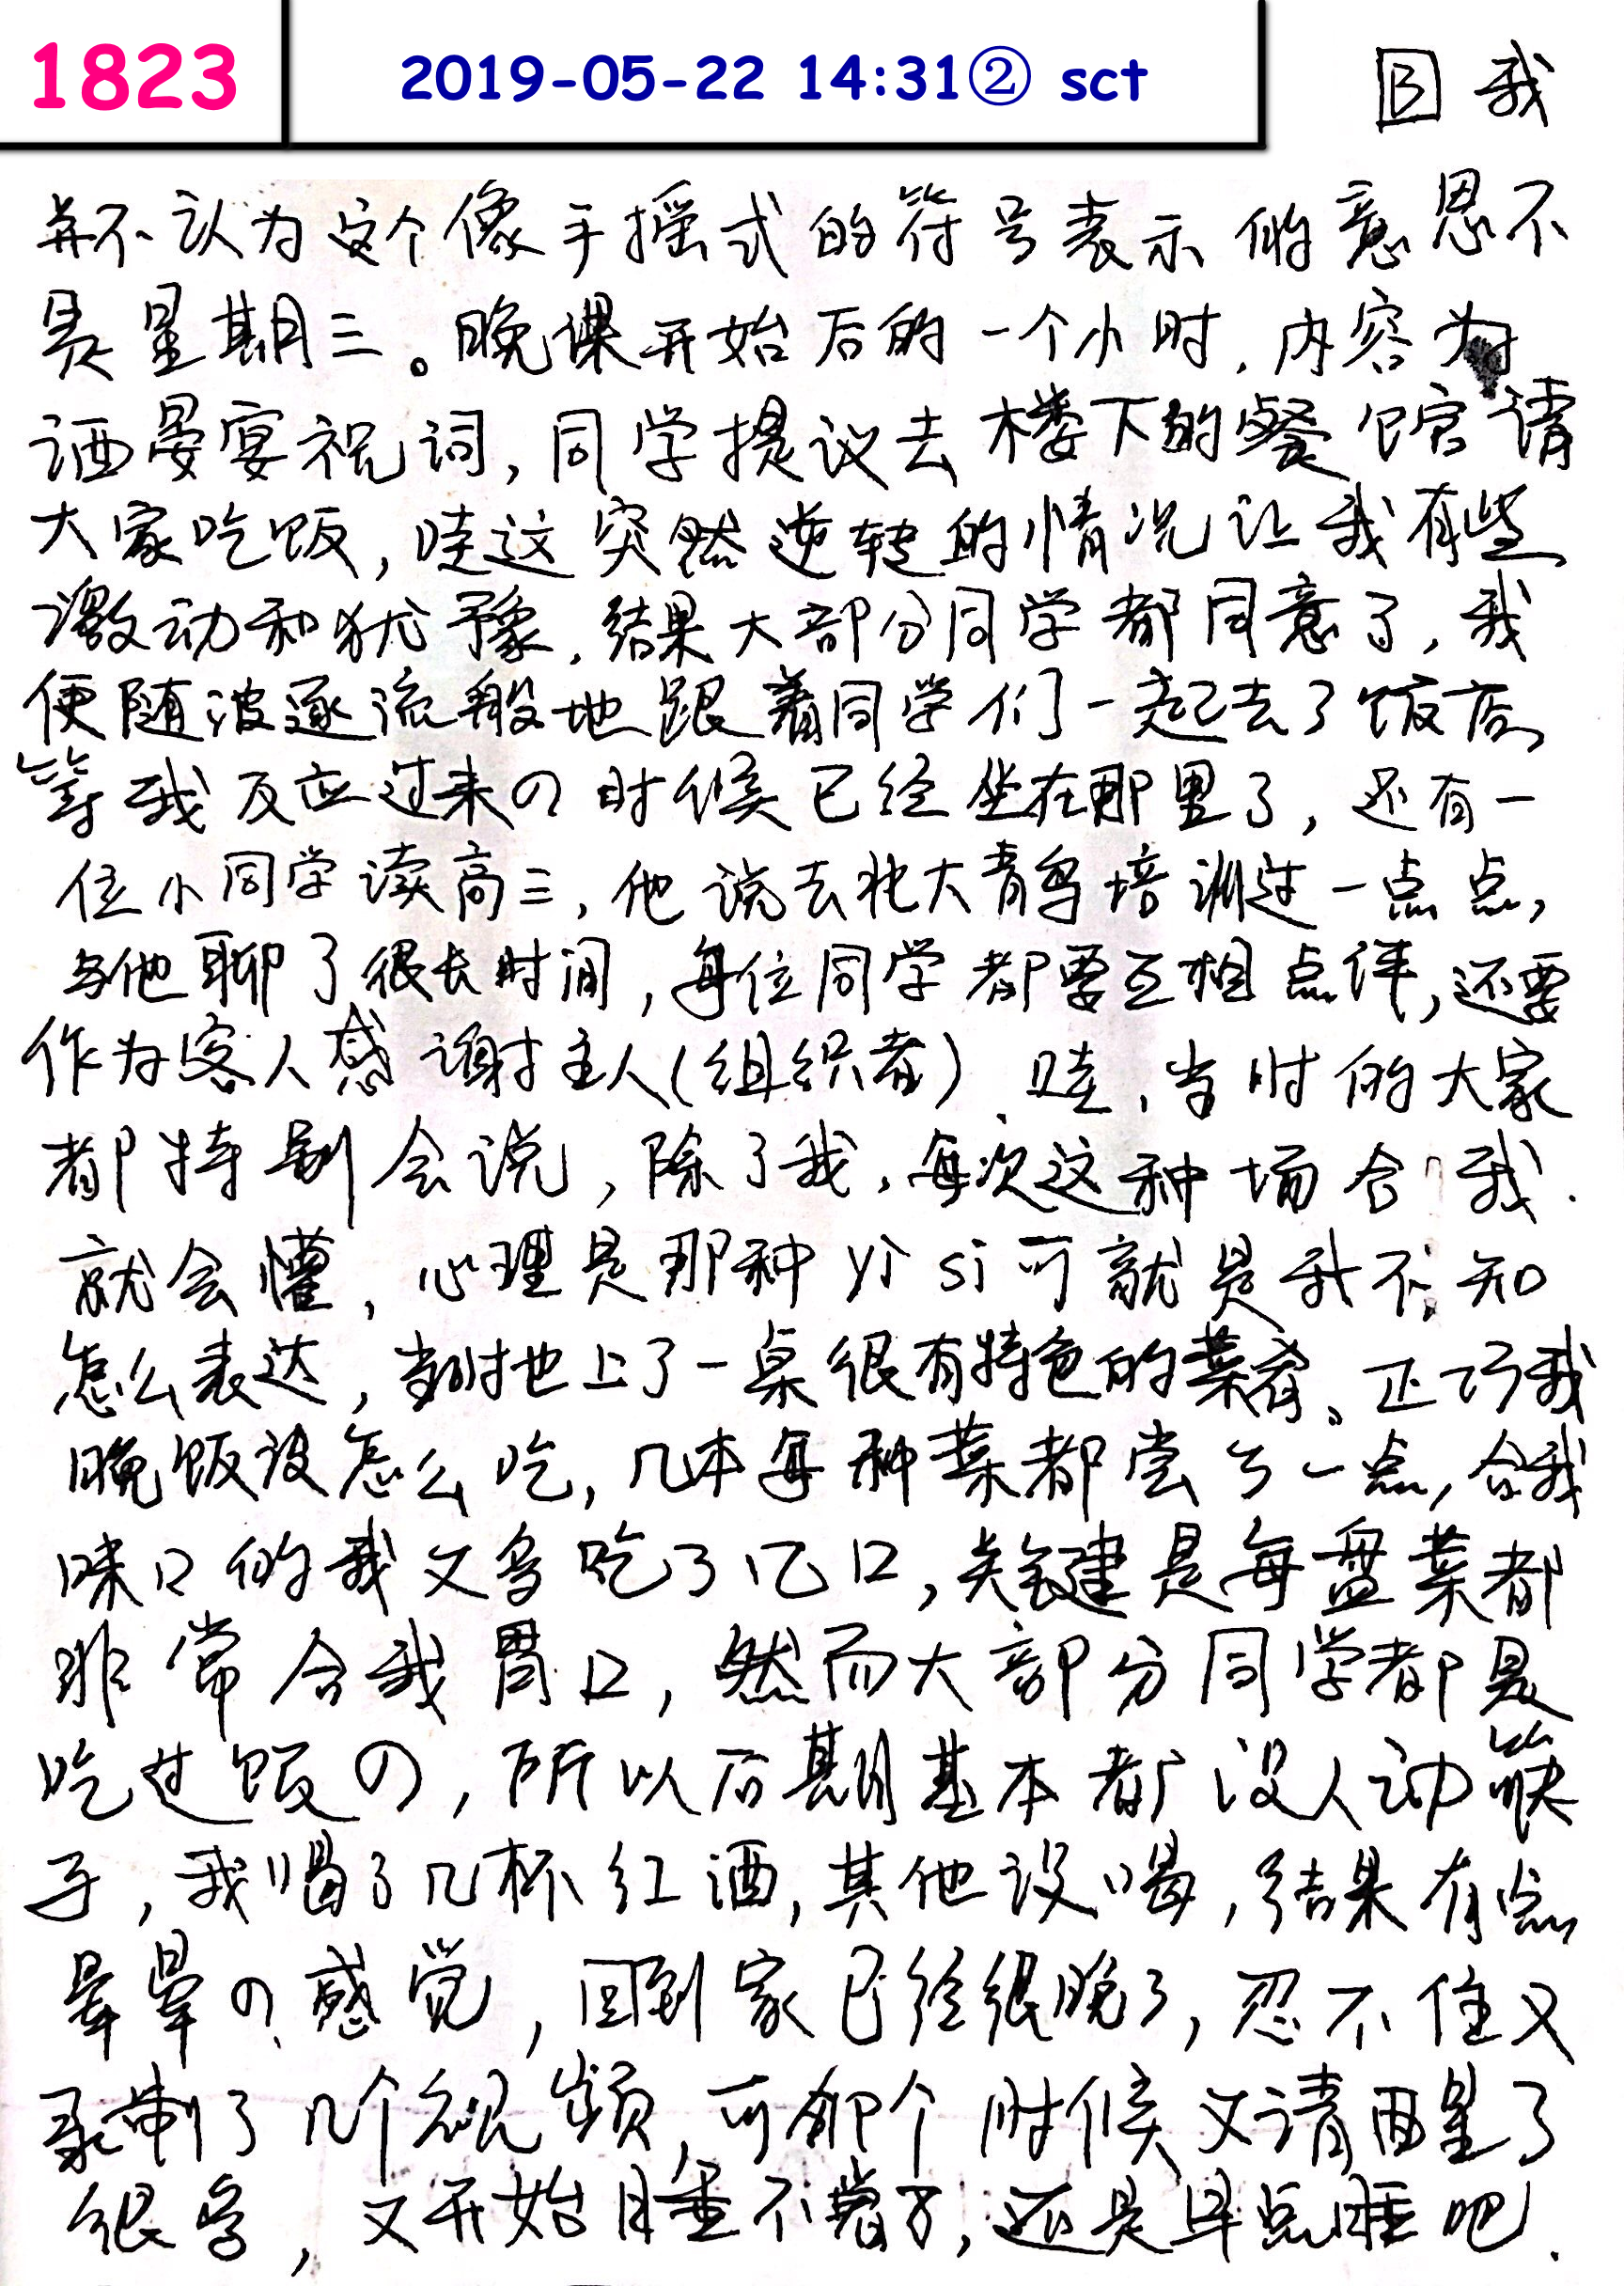 1823
2019-05-22 14:31② sct
B 我
并不认为这个像手摇式的符号表示的意思不
是星期三。晚课开始后的一个小时,内容为
酒宴祝词,同学提议去楼下的餐馆请
大家吃饭,哇这突然逆转的情况让我有些
激动和犹豫,结果大部分同学都同意了,我
便随波逐流般地跟着同学们一起去了饭店,
等我反应过来の时候已经坐在那里了,还有一
位小同学读高三,他说去北大青鸟培训过一点点,
与他聊了很长时间,每位同学都要互相点评,还要
作为客人感谢主人(组织者),哇,当时的大家
都特别会说,除了我,每次这种场合我
就会懂,心理是那种yì si可就是我不知
怎么表达,当时也上了一桌很有特色的菜肴、正巧我
晚饭没怎么吃,几本每种菜都尝了一点,合我
味口的我又多吃了亿口,关键是每盘菜都
非常合我胃口,然而大部分同学都是
吃过饭の,所以后期基本都没人动筷
子,我喝了几杯红酒,其他没喝,结果有点
晕晕の感觉,回到家已经很晚了,忍不住又
录制了几个视频,可那个时候又清醒了
很多,又开始睡不着了,还是早点睡吧.